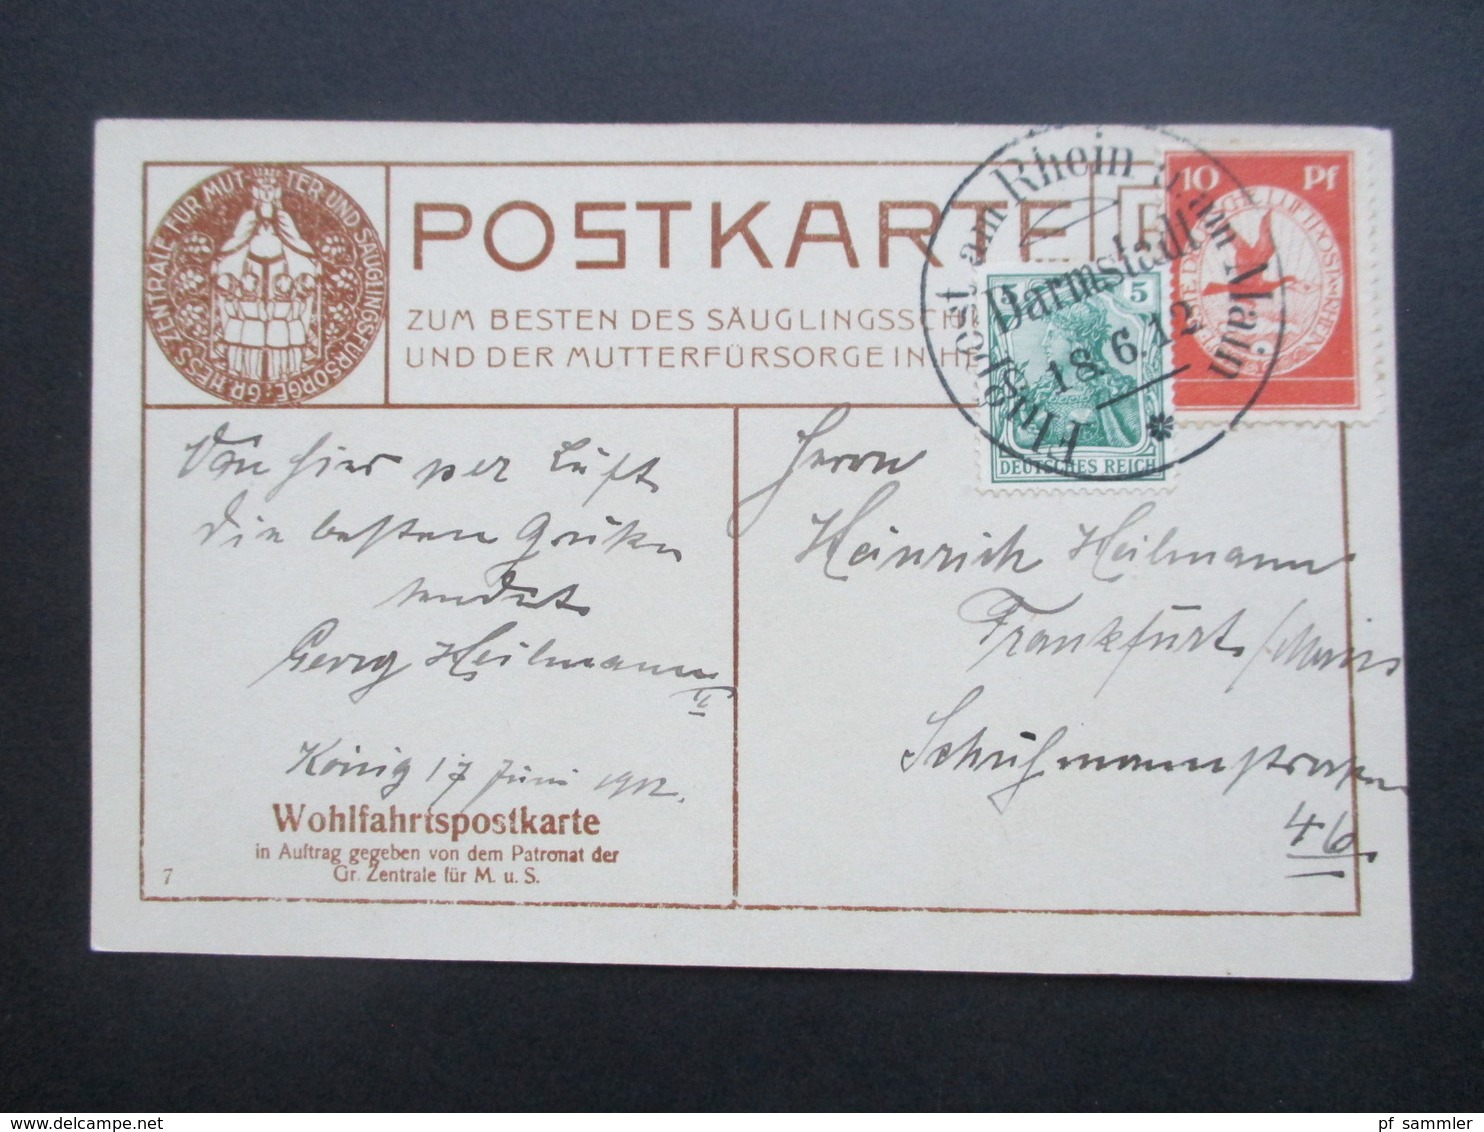 GR. HESS. ZENTRALE FÜR MUTTER UND SÄUGLINGSFÜRSORGE
POSTKARTE
ZUM BESTEN DES SÄUGLINGSSCH
UND DER MUTTERFÜRSORGE IN H
Flugpost am Rhein u. am Main
Darmstadt
18.6.12
10 Pf
5 5
DEUTSCHES REICH
Von hier per Luft
die besten Grüße
sendet
Georg Heilmann
II
König 17 Juni 1912.
Herrn
Heinrich Heilmann
Frankfurt /Main
Schuhmannstrasse
46.
Wohlfahrtspostkarte
in Auftrag gegeben von dem Patronat der
Gr. Zentrale für M. u. S.
7
pf sammler